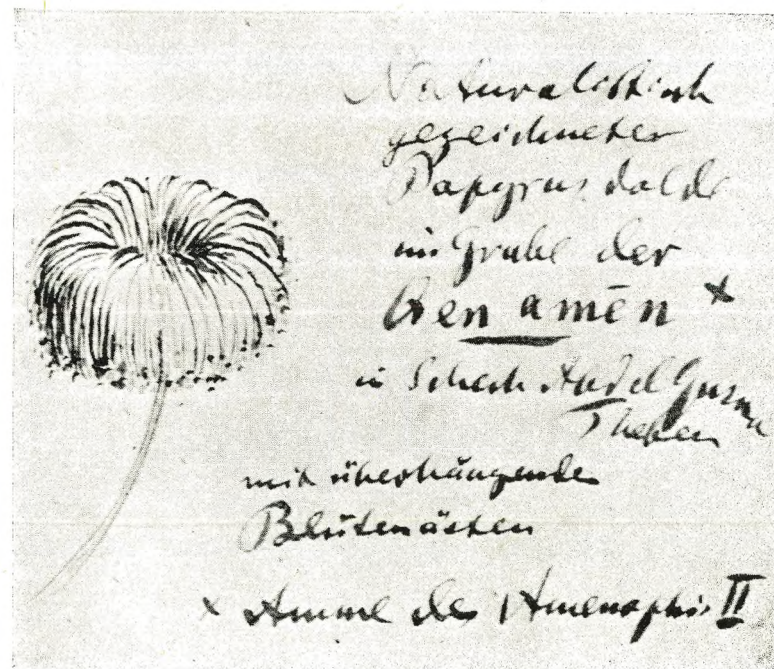 Naturalistisch
gezeichneter
Papyrusdolde
im Grabe der
Ken amēn ×
in Schech Abd el Gurna
Theben
mit überhängenden
Blütenästen
× Amme des Amenophis II